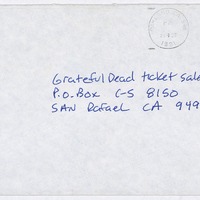 Grateful Dead ticket sale
P.O. Box C-S 8150
SAN Rafael CA 949